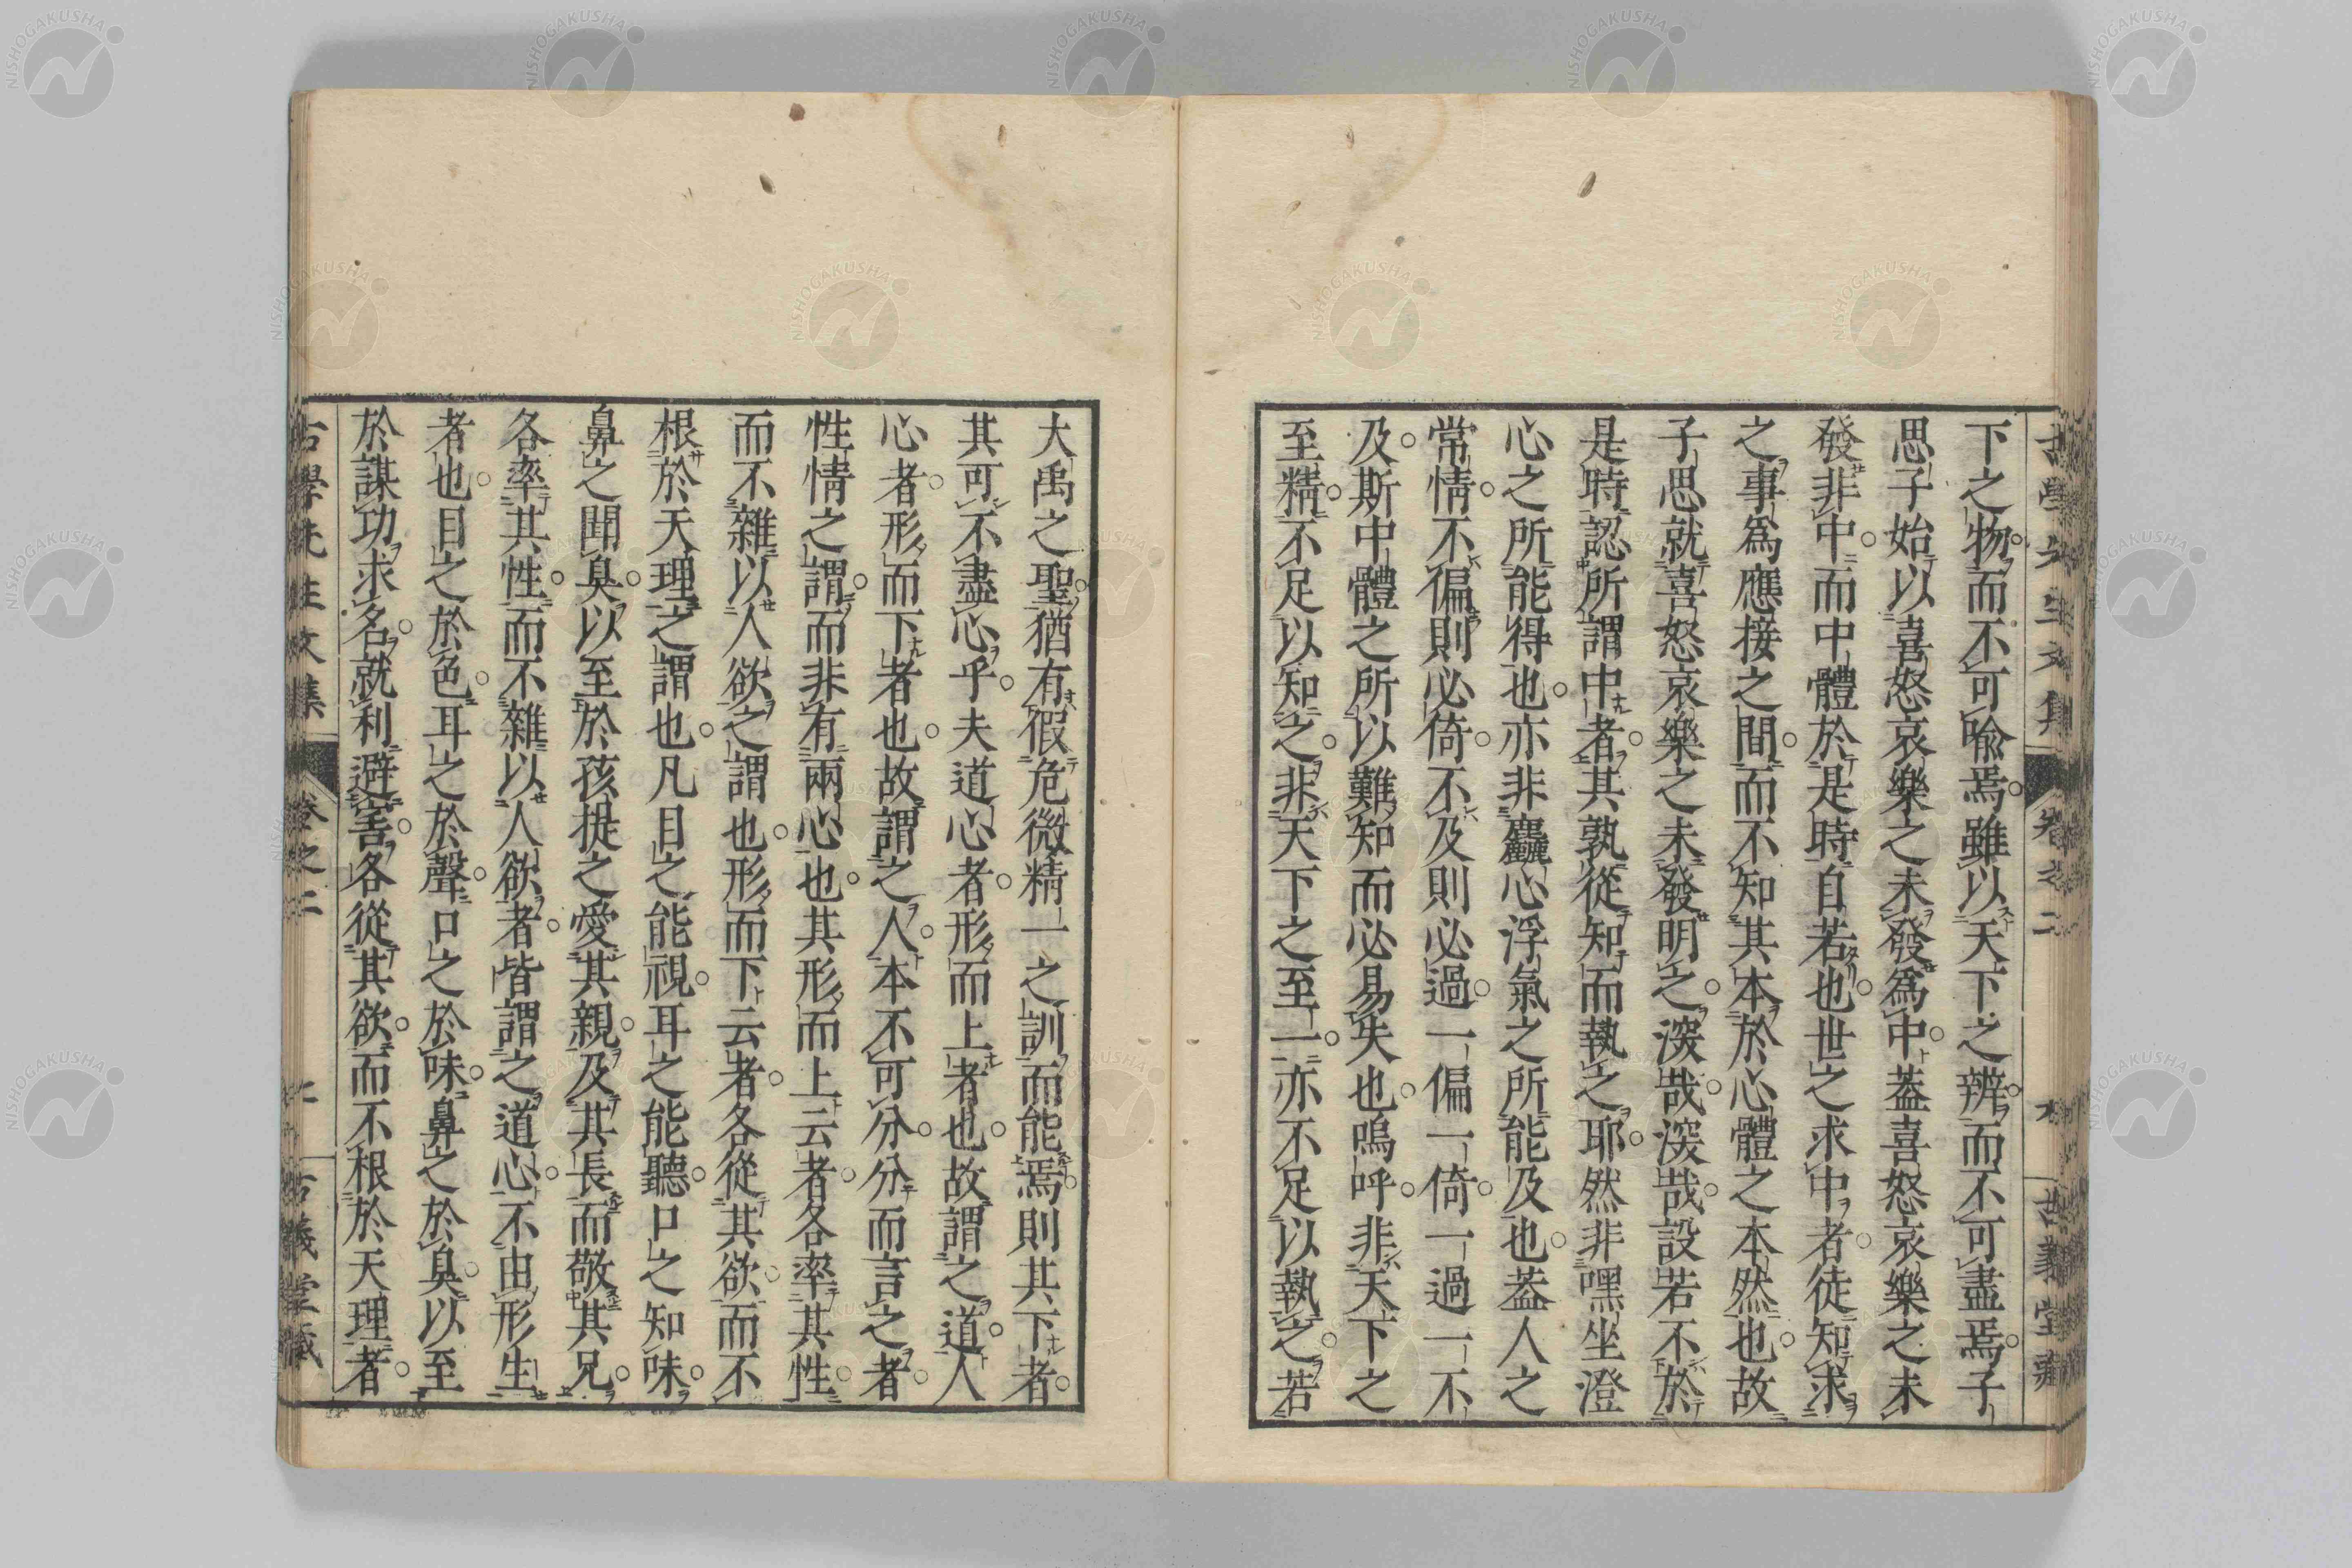 下之物而不可喩焉雖以天下之辨而不可盡焉子
思子始以喜怒哀樂之未發爲中葢喜怒哀樂之未
發非中而中體於是時自若也世之求中者徒知求
之事爲應接之間而不知其本於心體之本然也故
子思就喜怒哀樂之未發明之深哉深哉設若不於
是時認所謂中者其孰從知而執之耶然非嘿坐澄
心之所能得也亦非麤心浮氣之所能及也葢人之
常情不偏則必倚不及則必過一偏一倚一過一不
及斯中體之所以難知而必易失也嗚呼非天下之
至精不足以知之非天下之至一亦不足以執之若
大禹之聖猶有假危微精一之訓而能焉則其下者
其可不盡心乎夫道心者形而上者也故謂之道人
心者形而下者也故謂之人本不可分分而言之者
性情之謂而非有兩心也其形而上云者各率其性
而不雜以人欲之謂也形而下云者各從其欲而不
根於天理之謂也凡目之能視耳之能聽口之知味
鼻之聞臭以至於孩提之愛其親及其長而敬其兄
各率其性而不雜以人欲者皆謂之道心不由形生
者也目之於色耳之於聲口之於味鼻之於臭以至
於謀功求名就利避害各從其欲而不根於天理者
古學先生文集 卷之二 古義堂藏
NISHOGAKUSHA